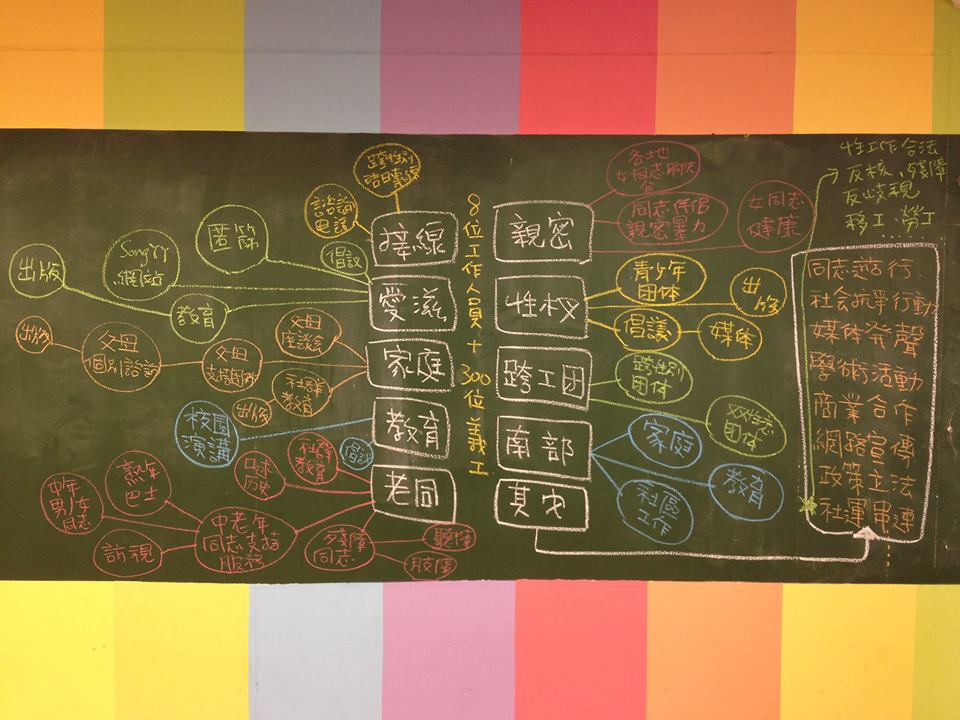 跨性別
諮日專線
諮詢
電話
接線
匿篩
倡議
網站
出版
教育
愛滋
父母
座談會
家庭
出版
父母
個別諮詢
父母
支持團体
社群
教育
出版
校園
演講
倡議
教育
社群
教育
口述
历史
老同
熟年
巴士
中年
男/女
同志
訪視
中老年
同志支持
服務
殘障
同志
聽障
肢障
8位工作人員+300位義工
親密
各地
女同志聊天
会
同志伴侶
親密暴力
女同志
健康
性权
青少年
団体
出版
倡議
媒体
跨工団
跨性別
団体
双性恋
団体
南部
家庭
教育
社區
工作
其它
性工作合法
反核、殘障
反歧視
移工、勞工
同志遊行
社会抗爭行動
媒体発聲
學術活動
商業合作
網路宣傳
政策立法
社運串連